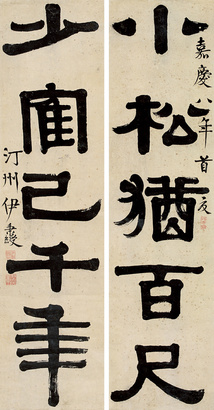 嘉慶八年首夏
小松猶百尺
少寉已千年
汀州伊秉綬